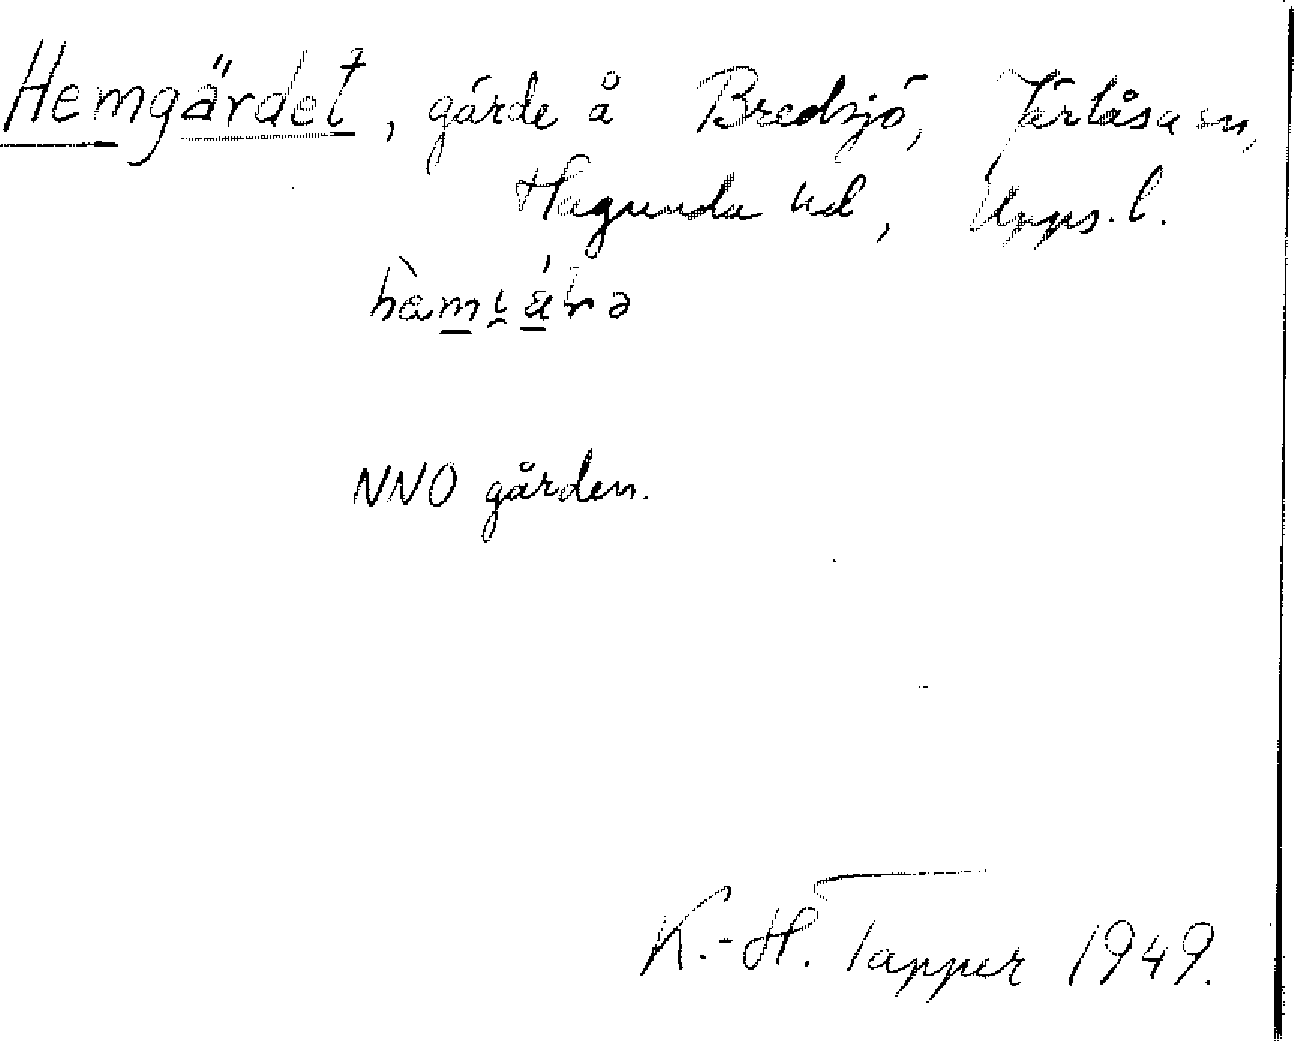 Hemgärdet, gärde å Bredsjö, Järlåsa sn,
Hagunda hd, Upps. l.
NNO gården.
K.-H. Tapper 1949.